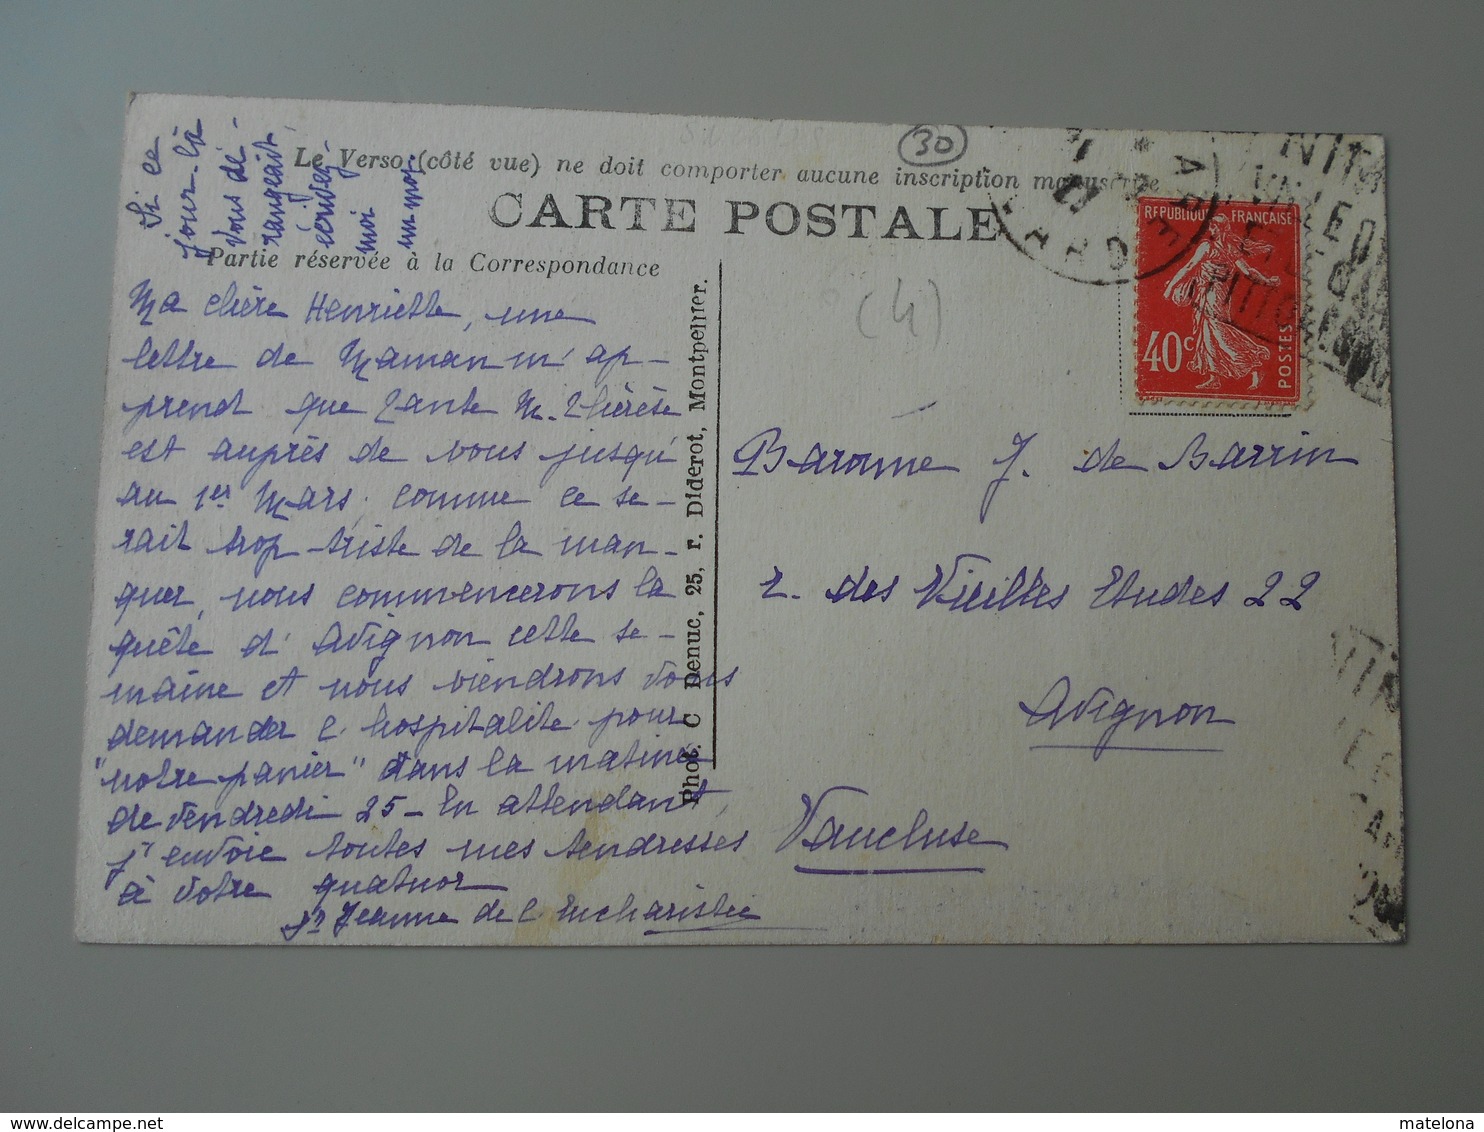 Si ce
jour-là
vous dé-
rangeait
écrivez-
moi
un mot
30
Le Verso (côté vue) ne doit comporter aucune inscription manuscrite
CARTE POSTALE
Partie réservée à la Correspondance
Ma chère Henriette, une
lettre de Maman m'ap-
prend que Tante M. Thérèse
est auprès de vous jusqu'
au 1er Mars, comme ce se-
rait trop triste de la man-
quer, nous commencerons la
quête d'Avignon cette se-
maine et nous viendrons vous
demander l'hospitalité pour
"notre panier" dans la matinée
de Vendredi 25 - En attendant,
j'envoie toutes mes tendresses
à votre quatuor
Sr Jeanne de l'Eucharistie
Phot. C Denuc, 25, r. Diderot, Montpellier.
(4)
REPUBLIQUE FRANÇAISE
40c
POSTES
Baronne J. de Barrin
r. des Vieilles Etudes 22
Avignon
Vaucluse
matelona